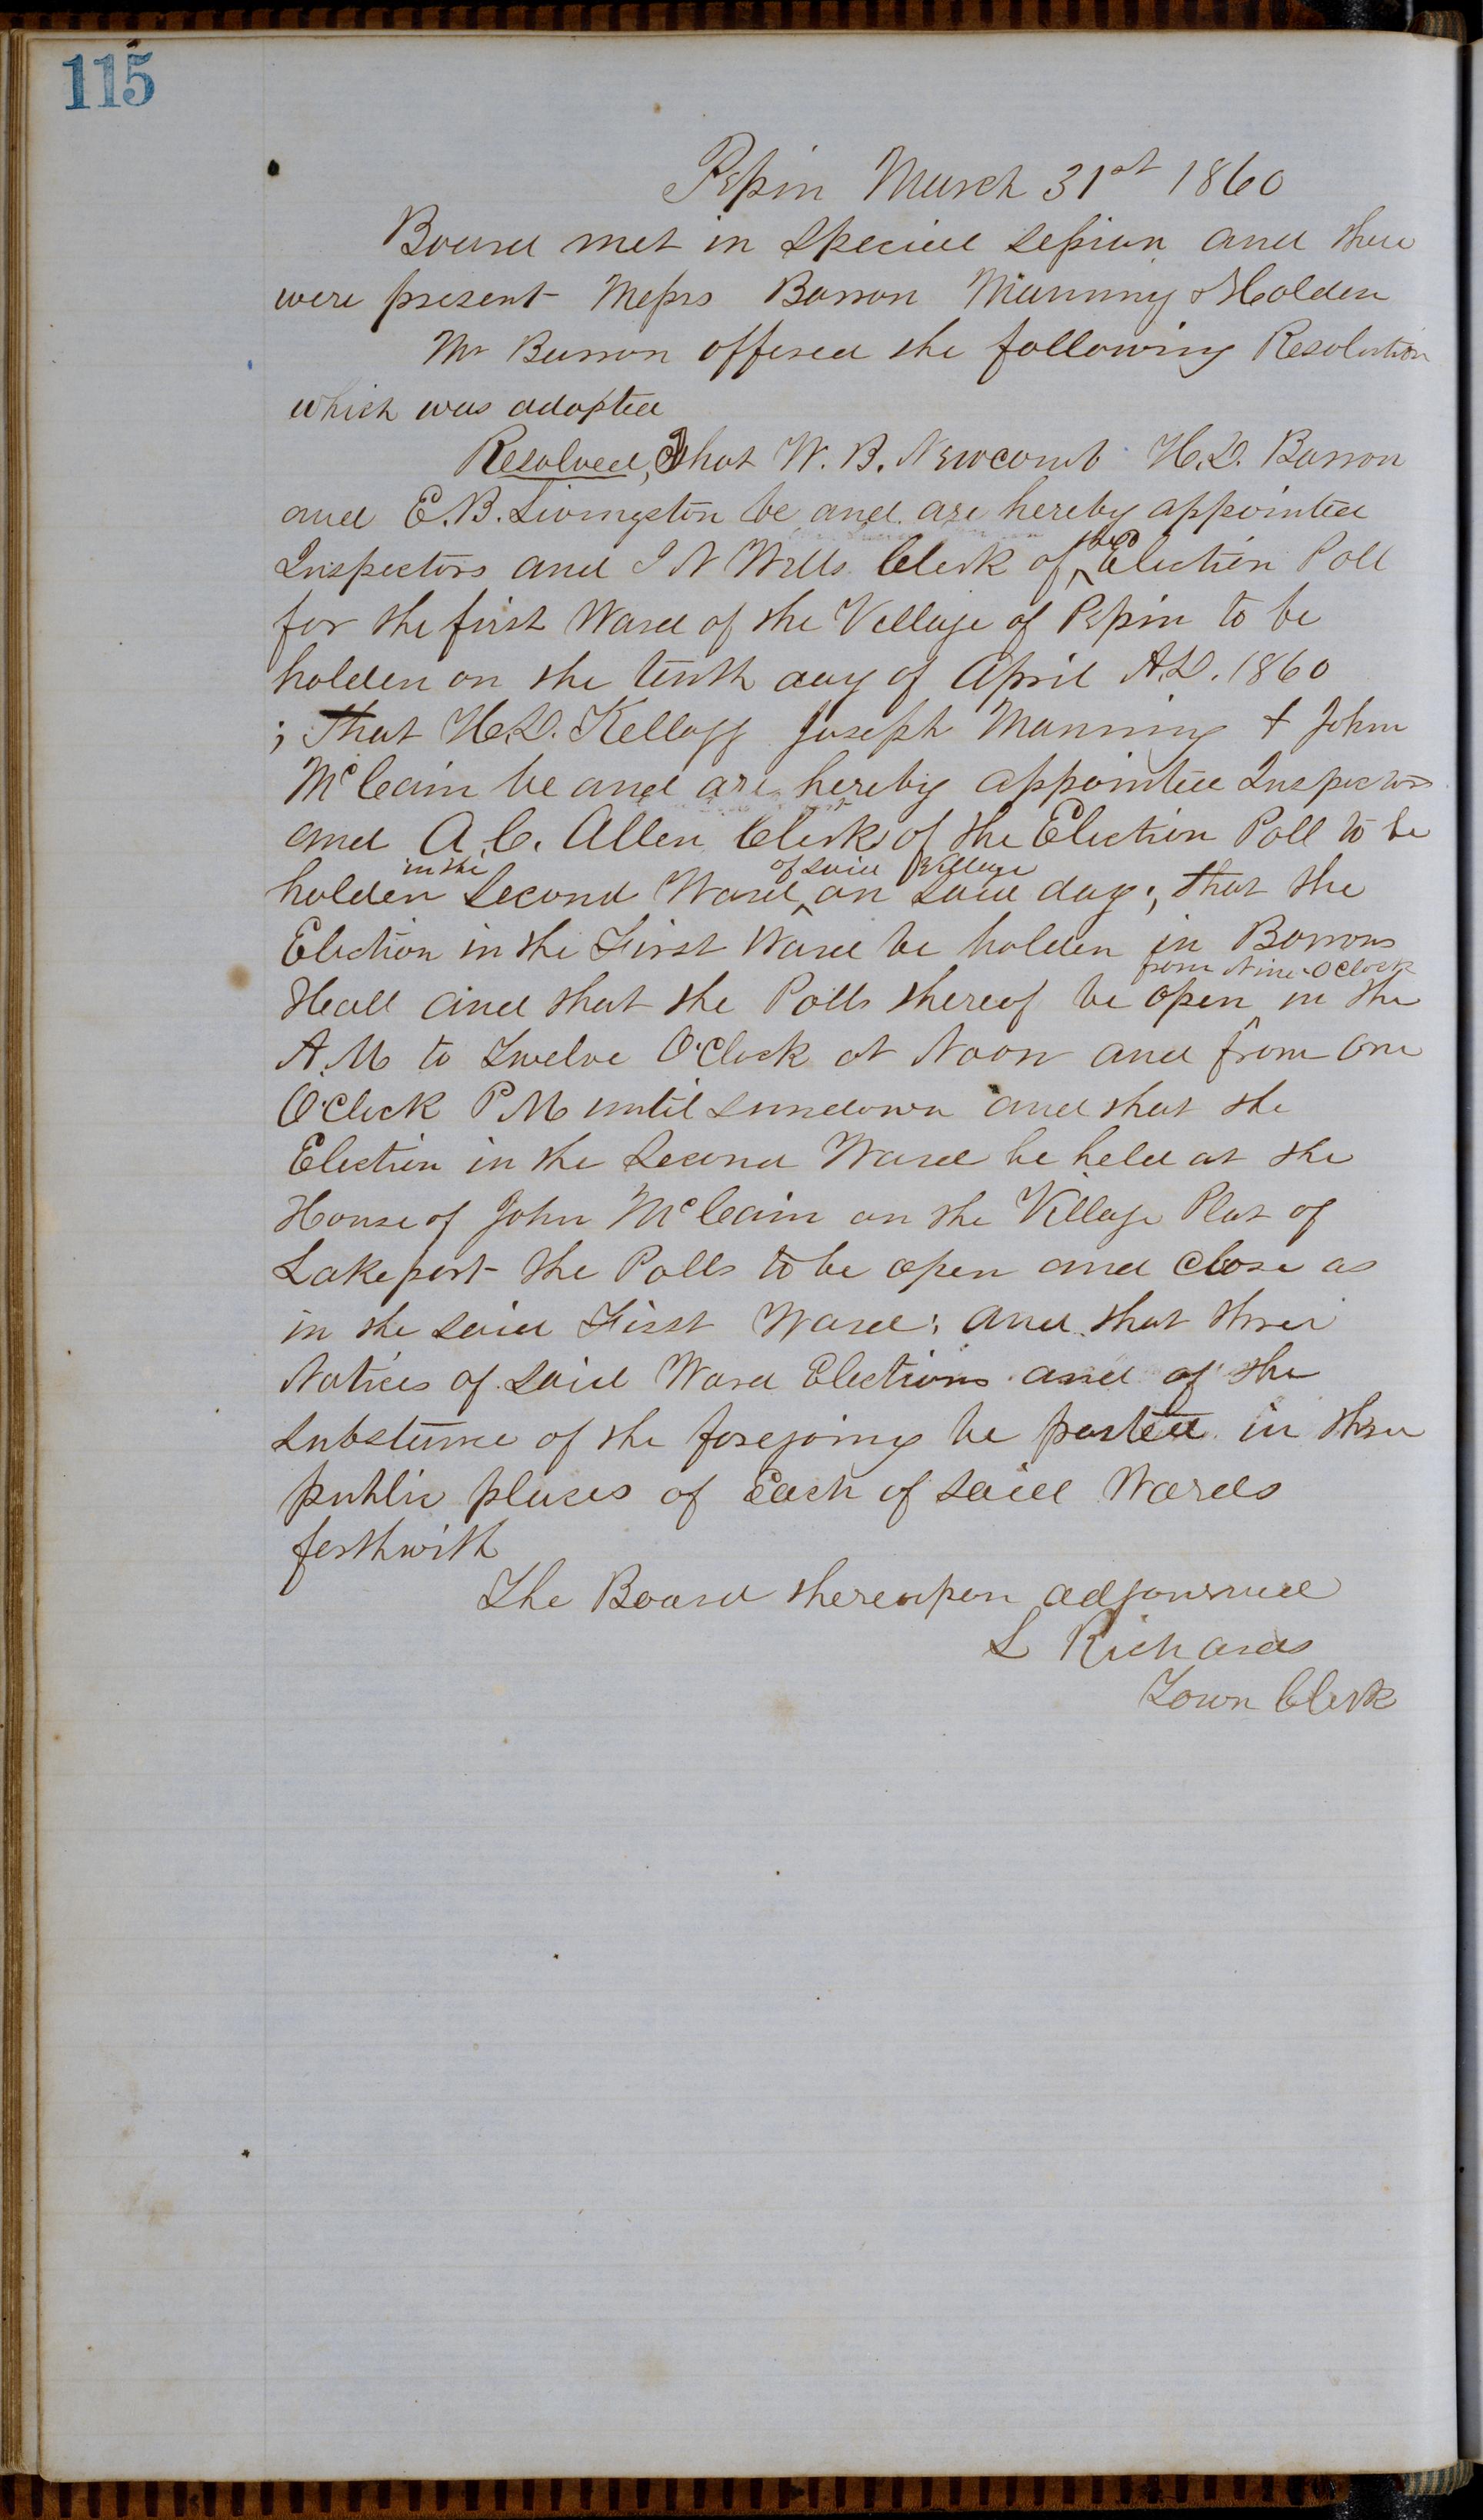 115
Pepin March 31st 1860
Board met in Special Session and there
were present Messrs Barron Manning & Holden
Mr Barron offered the following Resolution
which was adopted
Resolved, That W. B. Newcomb H.D. Barron
and E.B. Livingston be and are hereby appointed
the
Inspectors and I N Wills Clerk of ^ Election Poll
for the first Ward of the Village of Pepin to be
holden on the tenth day of April A.D. 1860
; That H.D. Kellogg Joseph Manning & John
McCain be and are hereby appointed Inspectors
and A. C. Allen Clerk of the Election Poll to be
in the of said Village
holden Second Ward ^ on said day; that the
Election in the First Ward be holden in Barrons
from Nine O'Clock
Hall and that the Polls thereof be open ^ in the
A.M to Twelve O'Clock at Noon and from one
O'Clock P M until sundown and that the
Election in the Second Ward be held at the
House of John McCain on the Village Plat of
Lakeport the Polls to be open and close as
in the said First Ward; and that three
Notices of said Ward Elections and of the
substance of the foregoing be posted in three
public places of Each of said Wards
forthwith
The Board thereupon adjourned
L Richards
Town Clerk